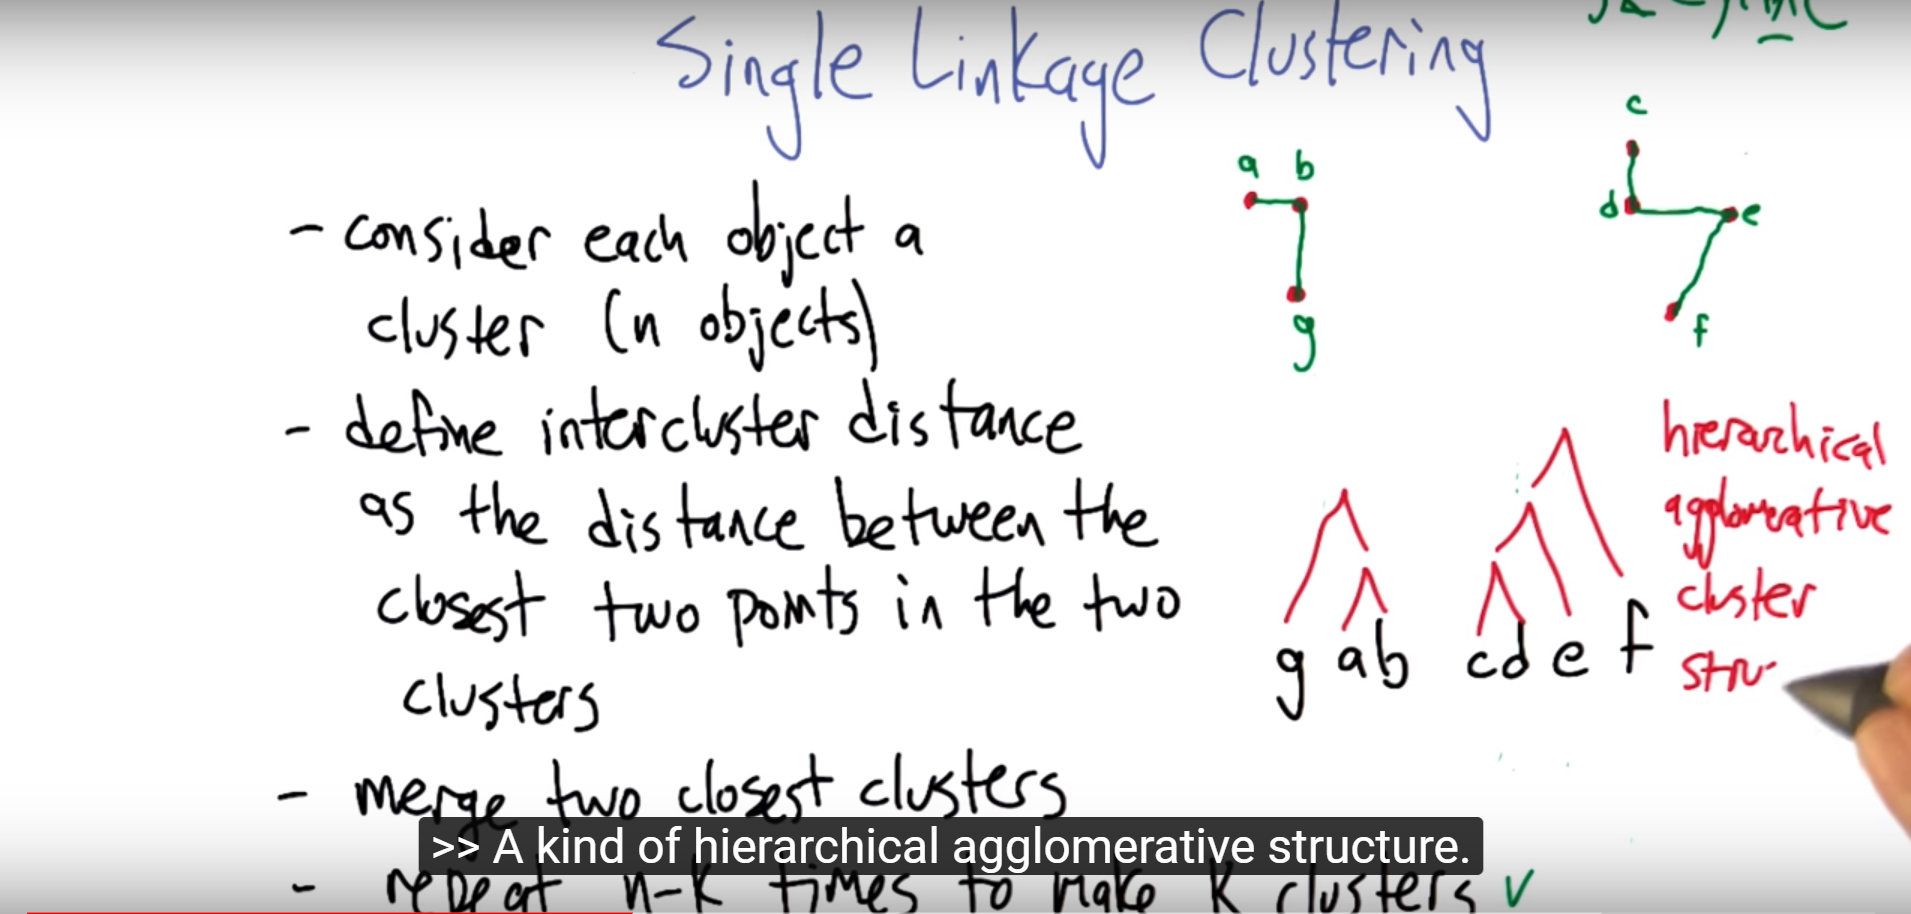 Single Linkage Clustering
a b
c
d e
g
f
- consider each object a
cluster (n objects)
- define intercluster distance
as the distance between the
closest two points in the two
clusters
- merge two closest clusters
- repeat n-k times to make k clusters
g a b c d e f
hierarchical
agglomerative
cluster
stru
>> A kind of hierarchical agglomerative structure.